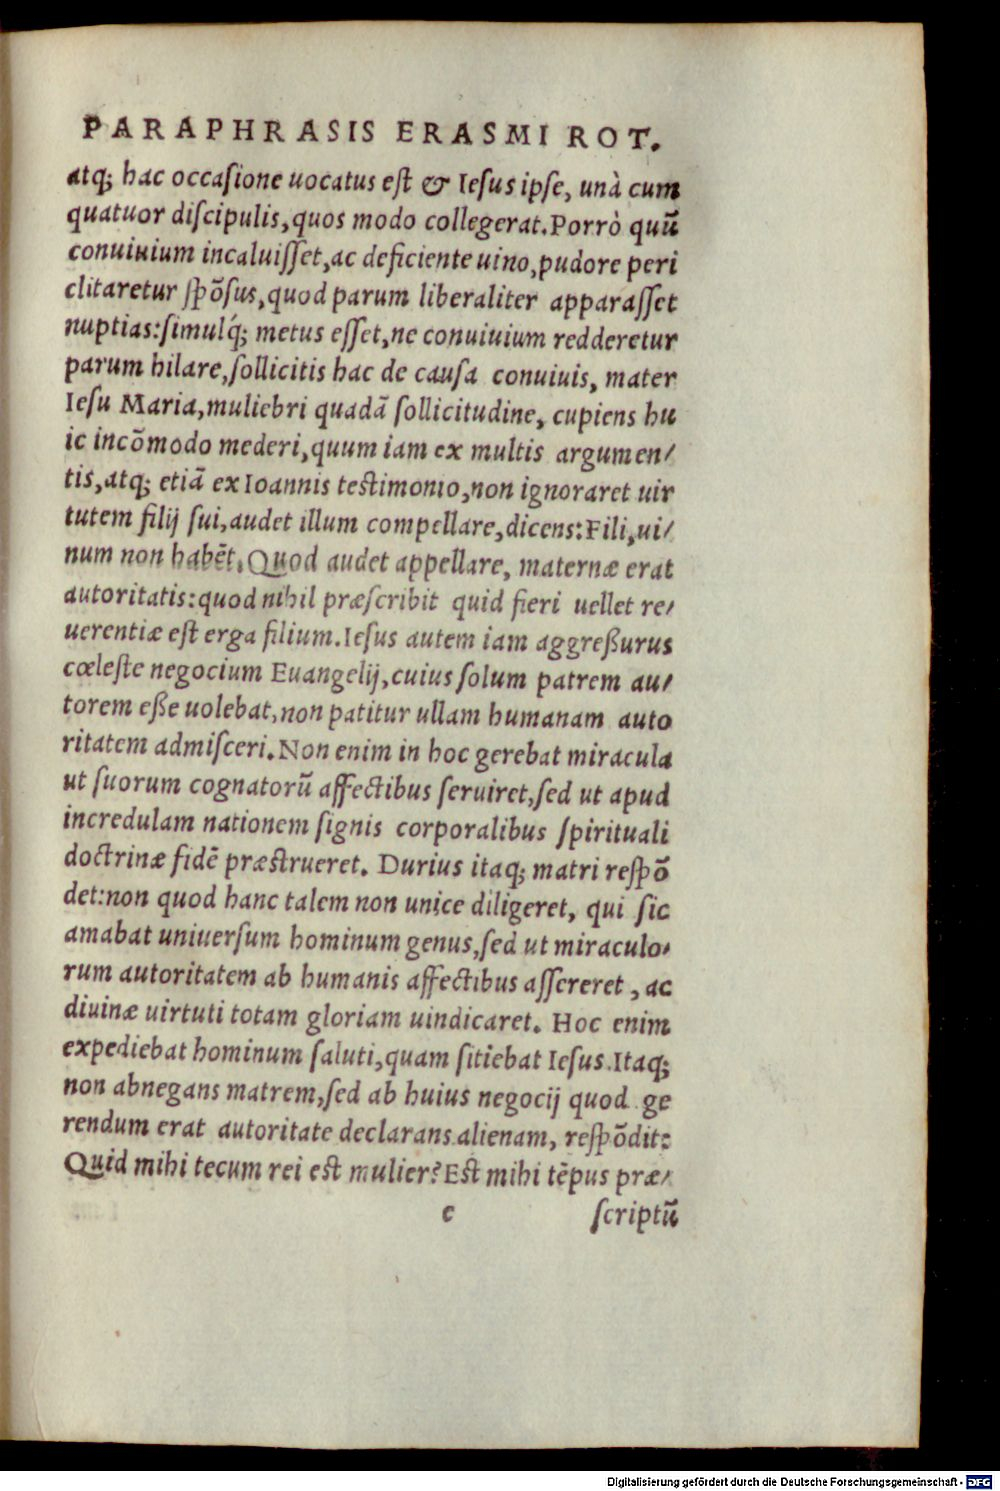 PARAPHRASIS ERASMI ROT.
atq; hac occasione uocatus est & Iesus ipse, unà cum
quatuor discipulis, quos modo collegerat. Porrò quū
conuiuium incaluisset, ac deficiente uino, pudore peri
clitaretur spōsus, quod parum liberaliter apparasset
nuptias: simulq́; metus esset, ne conuiuium redderetur
parum hilare, sollicitis hac de causa conuiuis, mater
Iesu Maria, muliebri quadā sollicitudine, cupiens hu
ic incōmodo mederi, quum iam ex multis argumen/
tis, atq; etiā ex Ioannis testimonio, non ignoraret uir
tutem filij sui, audet illum compellare, dicens: Fili, ui/
num non habēt. Quod audet appellare, maternæ erat
autoritatis: quod nihil præscribit quid fieri uellet re/
uerentiæ est erga filium. Iesus autem iam aggreßurus
cœleste negocium Euangelij, cuius solum patrem au/
torem eße uolebat, non patitur ullam humanam auto
ritatem admisceri. Non enim in hoc gerebat miracula
ut suorum cognatorū affectibus seruiret, sed ut apud
incredulam nationem signis corporalibus spirituali
doctrinæ fidē præstrueret. Durius itaq; matri respō
det: non quod hanc talem non unice diligeret, qui sic
amabat uniuersum hominum genus, sed ut miraculo/
rum autoritatem ab humanis affectibus assereret, ac
diuinæ uirtuti totam gloriam uindicaret. Hoc enim
expediebat hominum saluti, quam sitiebat Iesus. Itaq;
non abnegans matrem, sed ab huius negocij quod ge
rendum erat autoritate declarans alienam, respōdit:
Quid mihi tecum rei est mulier? Est mihi tēpus præ/
c scriptū
Digitalisierung gefördert durch die Deutsche Forschungsgemeinschaft - DFG